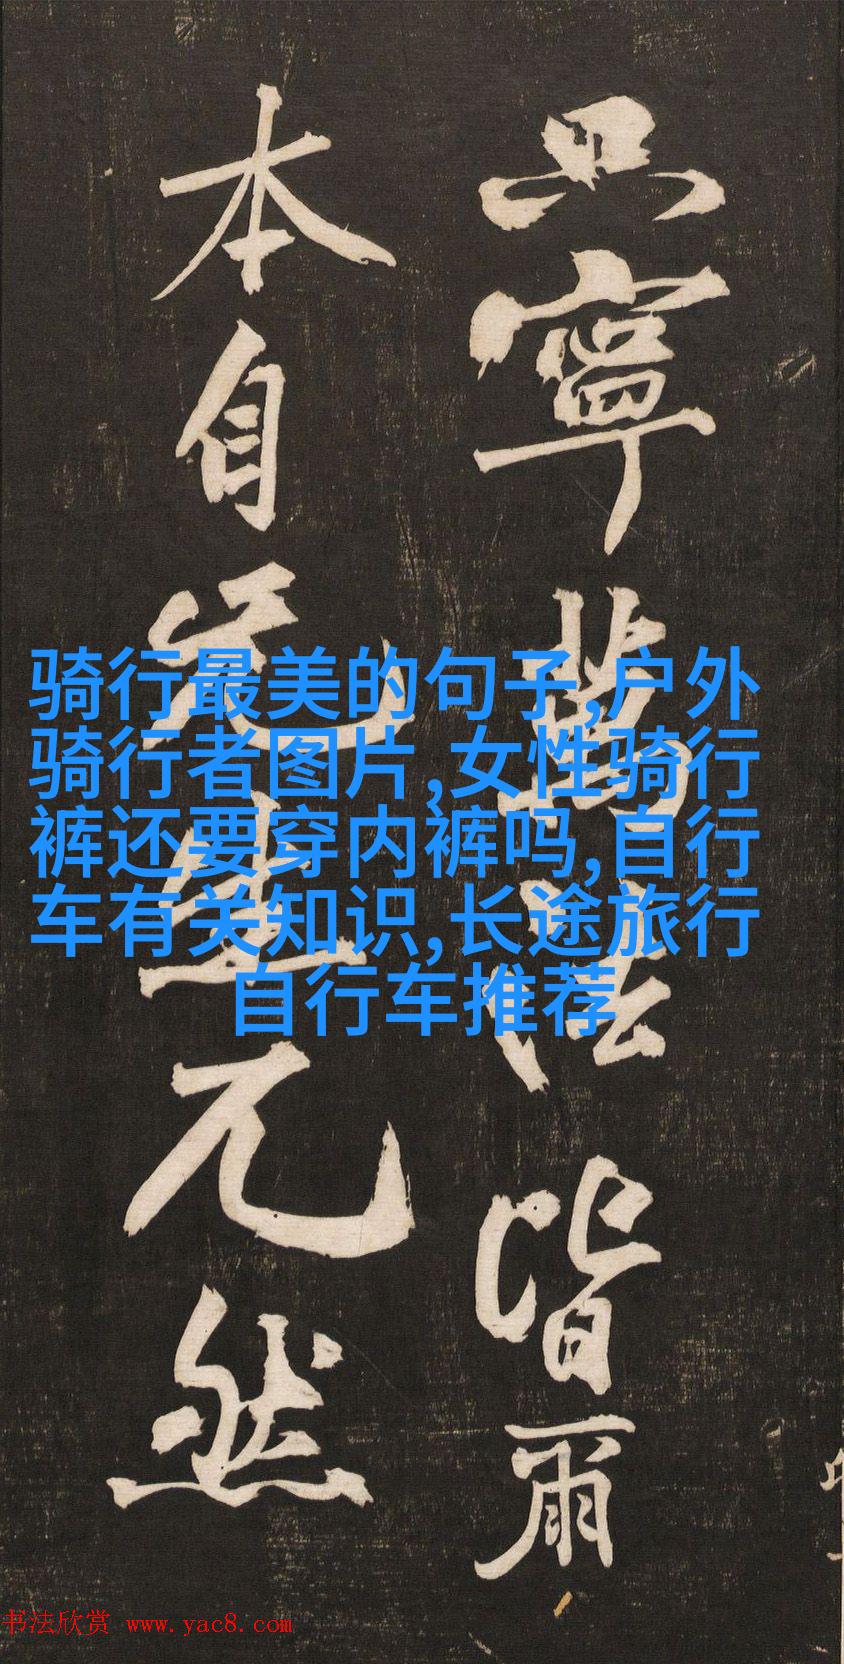 只寧萬法皆爾
本自无生兀然
骑行最美的句子,户外
骑行者图片,女性骑行
裤还要穿内裤吗,自行
车有关知识,长途旅行
自行车推荐
书法欣赏 www.yac8.com